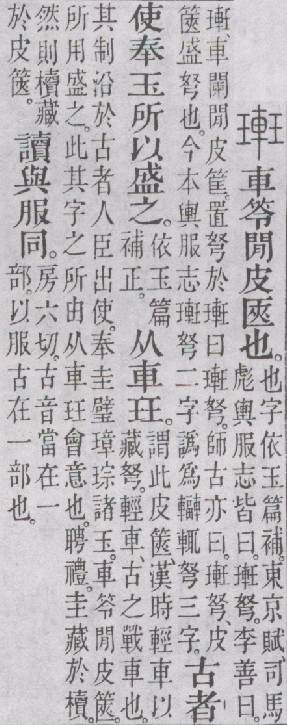 車笭閒皮匧也。也字依玉篇補。東京賦、司馬
彪輿服志皆曰。㻷弩。李善曰。
㻷、車闌閒皮筐。置弩於㻷曰㻷弩。師古亦曰。㻷弩、皮
篋盛弩也。今本輿服志㻷弩二字譌爲轓輒弩三字。古者
使奉玉所以盛之。依玉篇
補正。从車玨。謂此皮篋、漢時輕車以
藏弩。輕車古之戰車也。
其制沿於古者人臣出使。奉圭璧璋琮諸玉。車笭閒皮篋。
所用盛之。此其字之所由从車玨會意也。聘禮。圭藏於櫝。
然則櫝藏
於皮篋。讀與服同。房六切。古音當在一
部。以服古在一部也。